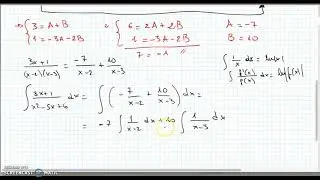 {3 = A + B
1 = -3A - 2B
{6 = 2A + 2B
1 = -3A - 2B
7 = -A
A = -7
B = 10
3x+1/(x-2)(x-3) = -7/x-2 + 10/x-3
∫ 1/x dx = ln|x|
∫ f'(x)/f(x) dx = ln|f(x)|
∫ 3x+1/x²-5x+6 dx = ∫ (-7/x-2 + 10/x-3) dx =
= -7 ∫ 1/x-2 dx + 10 ∫ 1/x-3 dx
SCREENCAST
MATIC